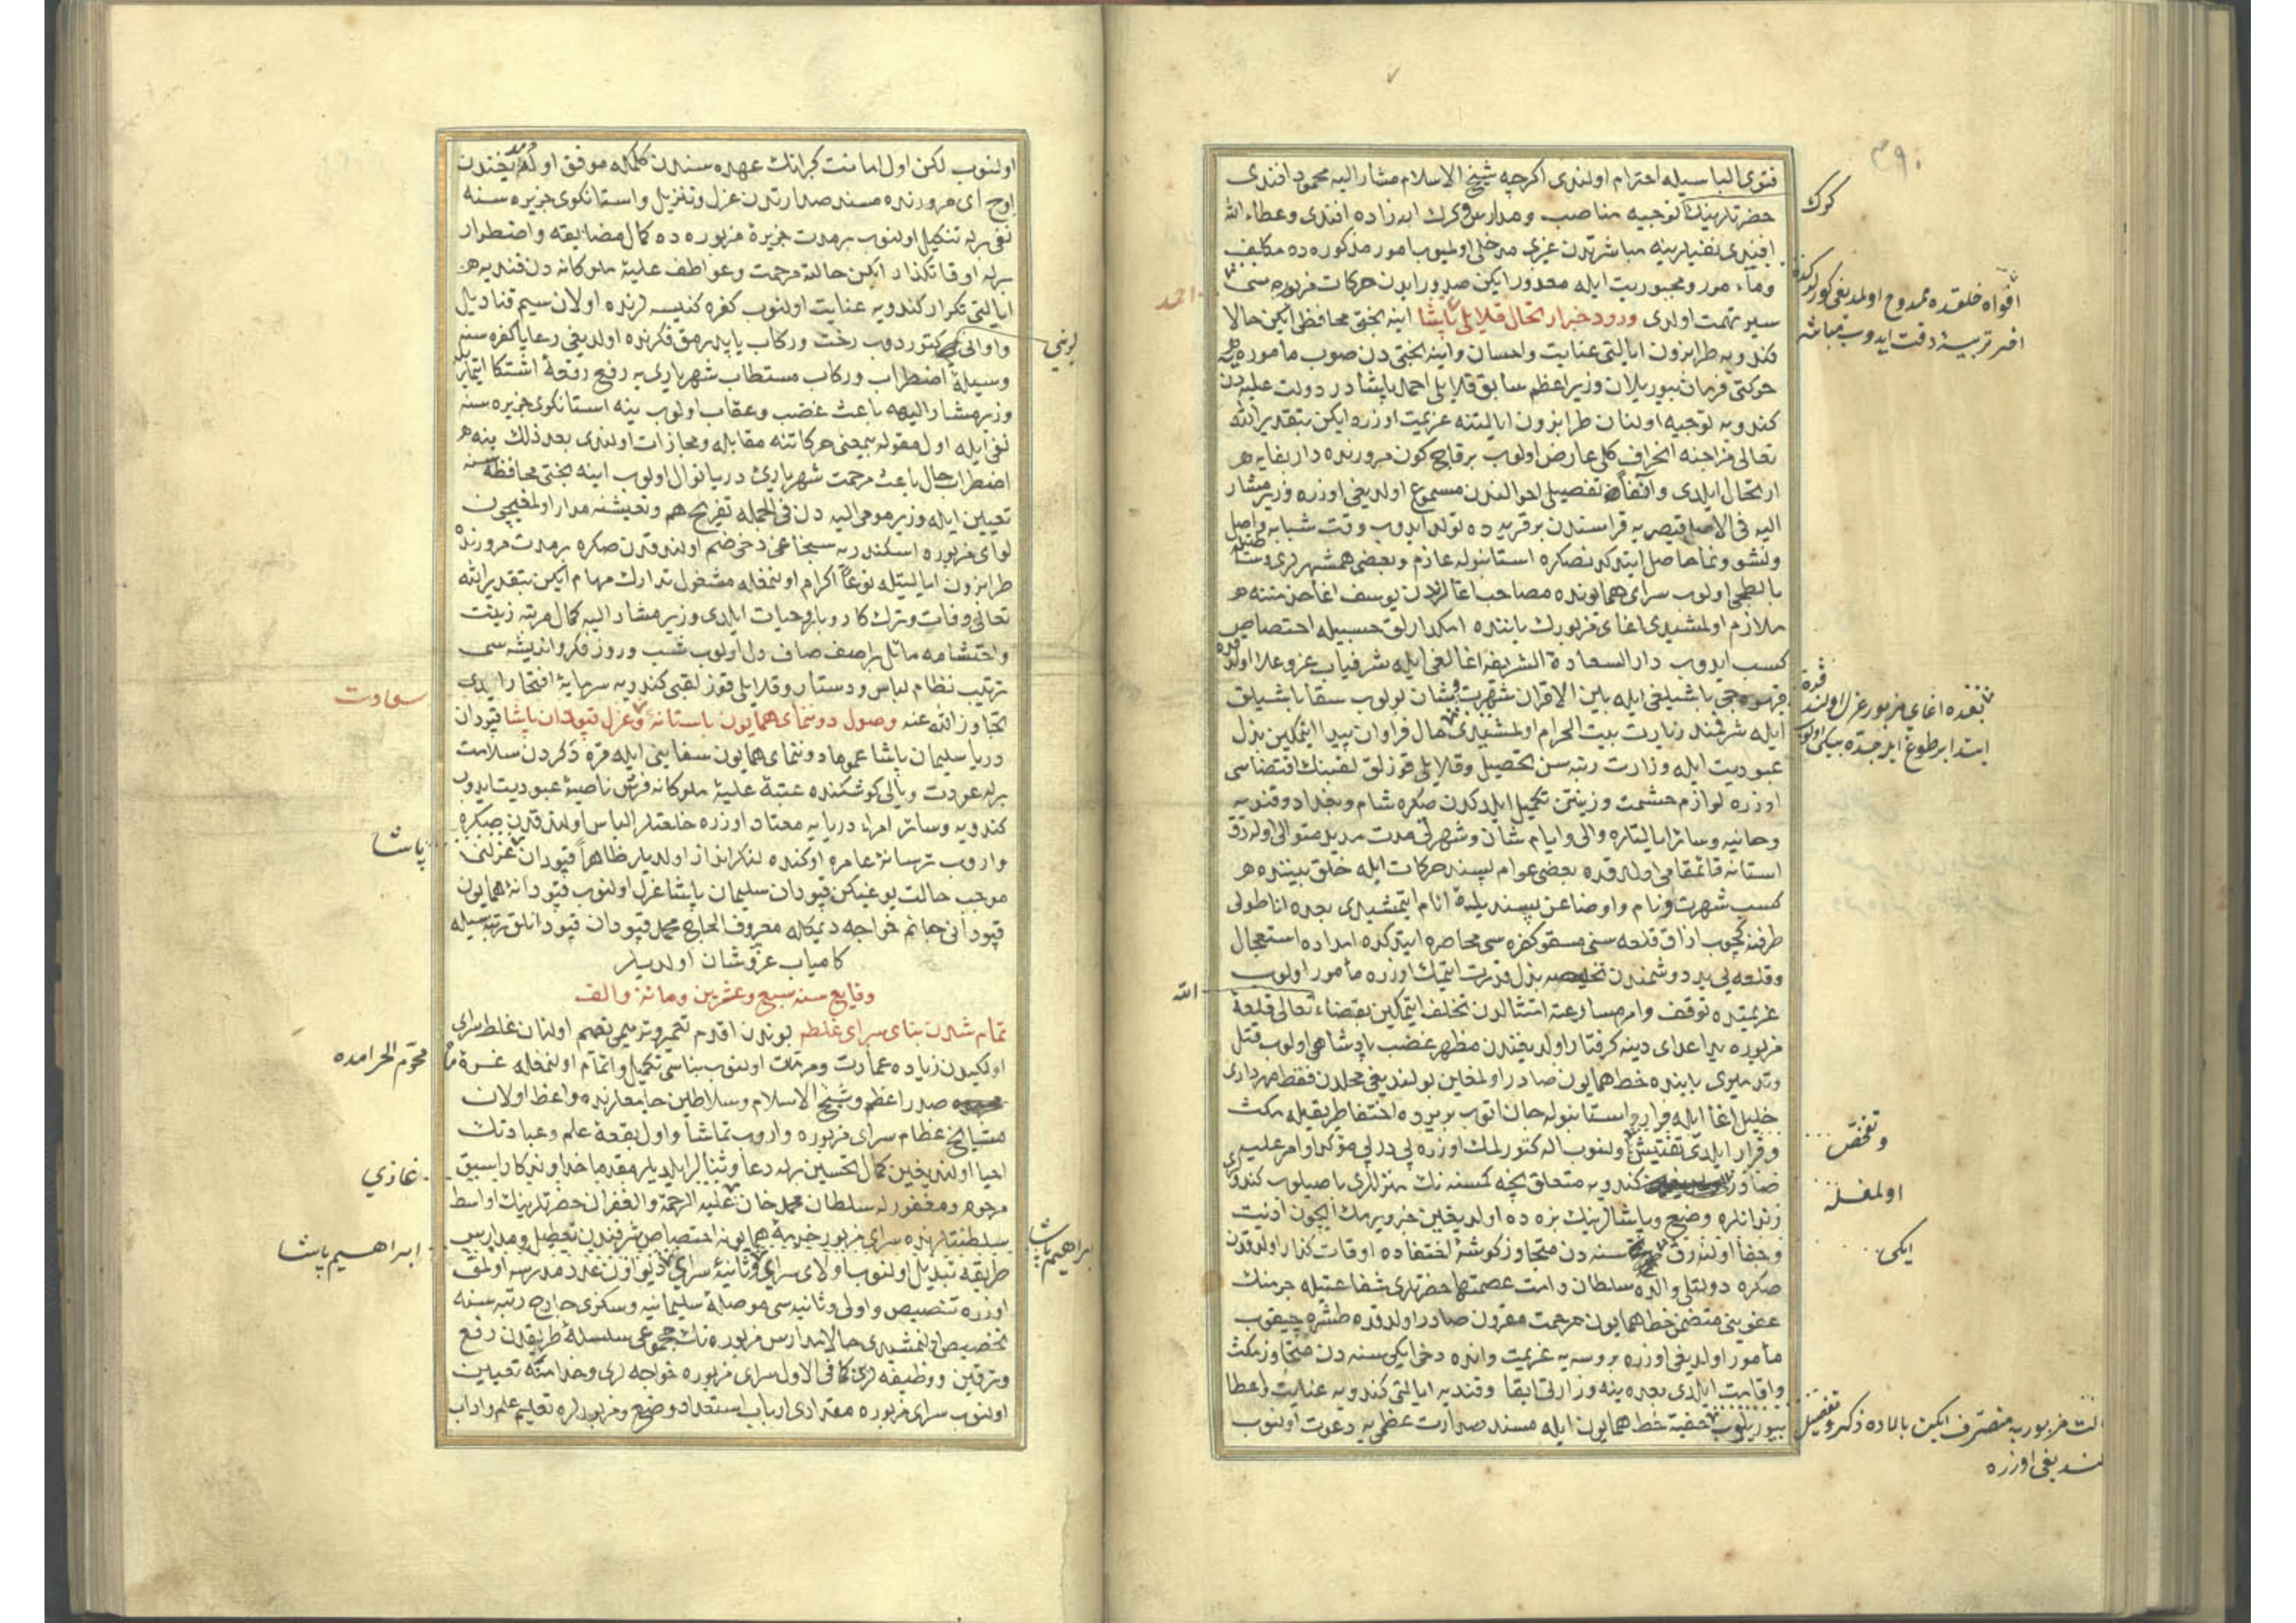 ٣٩٠
فتوى الباسیله احترام اولندی اکرچه شیخ الاسلام مشار الیه محمود افندی
حضرتلرینك توجیه مناصب ومدارس وکرك ابه زاده افندی وعطاء الله
افندی نفیلرینه مباشرتدن غیری مدخلی اولمیوب امور مذکوره ده مکلف
وماءمور ومجبوریت ایله معذور ایکن صدور ایدن حرکات مزبوره سی
سیر تهمت اولدی ورود خبر ارتحال قلایلی پاشا اینه بختی محافظی ایکن حالا
کندویه طرابزون ایالتی عنایت واحسان واینه بختی دن صوب مأموره
حرکتی فرمان بیوریلان وزیر اعظم سابق قلایلی احمد پاشا در دولت علیه دن
کندویه توجیه اولنان طرابزون ایالتنه عزیمت اوزره ایکن بتقدیر الله
تعالی مزاجنه انحراف کلی عارض اولوب برقاچ کون مرورنده دار بقایه
ارتحال ایلدی تفصیلی احوالندن مسموع اولدیغی اوزره وزیر مشار
الیه فی الاصل قیصریه قراسندن بر قریه ده تولد ایدوب وقت شبابه واصل
ونشو ونما حاصل ایتدکدنصکره استانبوله عازم وبعضی همشهریلری
بالطه جی اولوب سرای همایونده مصاحب اغالردن یوسف اغا خدمتنه
ملازم اولمشیدی اغای مزبورك یاننده امکدارلق حسبیله اختصاص
کسب ایدوب دار السعادة الشریفه اغالغی ایله شرفیاب عز وعلا
قهوه جی باشیلغی ایله بین الاقران شهرت وشان بولوب سقا باشیلق
ایله شرفمند زیارت بیت الحرام اولمشیدی مال فراوان پیدا ایتمکین بذل
عبودیت ایله وزارت رتبه سن تحصیل وقلایلی قوزلق لقبنك اقتضاسی
اوزره لوازم حشمت وزینتن تکمیل ایلدکدن صکره شام وبغداد وقندیه
وحانیه وسائر ایالتلره والی وایام شان وشهرتی مدت مدید متوالی اولهرق
استانه قائمقامی اولدقده بعضی عوام پسند حرکات ایله خلق بیننده
کسب شهرت ونام واوضاعن پسندیدهٔ انام ایتمشیدی بعده اناطولی
طرفنه کچوب ازاق قلعه سنی مسقو کفره سی محاصره ایتدکده امداده استعجال
وقلعه یی ید دوشمندن تخلیصه بذل قدرت ایتمك اوزره مأمور اولوب
عزیمتده توقف وامره مسارعته امتثالدن تخلف ایتمکین بقضاء الله تعالی قلعهٔ
مزبوره ید اعدای دینه کرفتار اولدیغندن مظهر غضب پادشاهی اولوب قتل
وتدمیری بابنده خط همایون صادر اولمغین بولندیغی محلدن فقط مهرداری
خلیل اغا ایله فرار واستانبوله جان اتوب بر یرده اختفا طریقیله مکث
وقرار ایلدی تفتیش اولنوب اله کتورلمك اوزره پی درپی مؤکد اوامر علیه
صادر کندویه متعلق نیجه کمسنه نك منزللری باصیلوب
زندانلره وضع وپاشالرینك نره ده اولدیغین خبر ویرمك ایچون اذیت
وجفا اولنه رق سنه دن متجاوز کوشهٔ اختفاده اوقات کذار اولدقدن
صکره دولتلی والده سلطان دامت عصمتها حضرتلری شفاعتیله جرمنك
عفوینی متضمن خط همایون مرحمت مقرون صادر اولدقده طشره چیقوب
مأمور اولدیغی اوزره بروسه یه عزیمت وانده دخی ایکی سنه دن متجاوز مکث
واقامت ایلدی بعده ینه وزارتی ابقا وقندیه ایالتی کندویه عنایت واعطا
بیوریلوب خفیة خط همایون ایله مسند صدارت عظمی یه دعوت اولنوب
کرك
افواه خلقده ممدوح اولمدیغی
احمد
بعده اغای مزبور عزل اولندقده
ابتدا بر طوغ ایله جده بیکی اولوب
الله
وتفحص
اولمغله
ایکی
ایالت مزبوریه متصرف ایکن بالاده ذکر وتفصیل
اولندیغی اوزره
اولنوب لکن اول امانت کبرانك عهده سندن کلمکله موفق اولمدیغندن
اوچ ای مرورنده مسند صدارتدن عزل وتنزیل واستانکوی جزیره سنه
نفی برله تنکیل اولنوب بر مدت جزیرهٔ مزبوره ده کمال مضایقه واضطرار
برله اوقاتکذار ایکن حالنه مرحمت وعواطف علیهٔ ملوکانه دن قندیه
ایالتی تکرار کندویه عنایت اولنوب کفره کنیسه لرنده اولان سیم قنادیل
واوانی لرینی کتوردوب رخت ورکاب یاپدرمق فکرنده اولدیغی رعایا کفره سنه
وسیلهٔ اضطراب ورکاب مستطاب شهریاری یه رفع رقعهٔ اشتکا ایتمکله
وزیر مشار الیهه باعث غضب وعقاب اولوب ینه استانکوی جزیره سنه
نفی ایله اول مقوله بیمعنی حرکاتنه مقابله ومجازات اولندی بعد ذلك ینه
اضطراب حالی باعث مرحمت شهریاری دریا نوال اولوب اینه بختی محافظه سنه
تعیین ایله وزیر مومی الیه دن فی الجمله تفریح هم وتعیشنه مدار اولمغیچون
لوای مزبوره اسکندریه سنجاغی دخی ضم اولندقدن صکره بر مدت مرورنده
طرابزون ایالتیله نوعاً اکرام اولنمغله مشغول تدارك مهام ایکن بتقدیر الله
تعالی وفات وترك کار وبار حیات ایلدی وزیر مشار الیه کمال مرتبه زینت
واحتشامه مائل بر اصف صاف دل اولوب شب وروز فکر واندیشه سی
ترتیب نظام لباس ودستار وقلایلی قوز لقبی کندویه سرمایهٔ افتخار ایدی
تجاوز الله عنه وصول دوننمای همایون باستانهٔ سعادت وعزل قپودان پاشا قپودان
دریا سلیمان پاشا عموما دوننمای همایون سفاینی ایله قره دکزدن سلامت
برله عودت ویالی کوشکنده عتبهٔ علیهٔ ملوکانه فرش ناصیهٔ عبودیت ایدوب
کندویه وسائر امراء دریایه معتاد اوزره خلعتلر الباس اولندقدن صکره
واروب ترسانهٔ عامره اوکنده لنکر انداز اولدیلر ظاهراً قپودان پاشا عزلنی
موجب حالت یوغیکن قپودان سلیمان پاشا عزل اولنوب قپودانهٔ همایون
قپودانی جانم خواجه دیمکله معروف الحاج محمد قپودان قپودانلق رتبه سیله
کامیاب عز وشان اولدیلر
وقایع سنه سبع وعشرین ومائة والف
تمام شدن بنای سرای غلطه بوندن اقدم تعمیر وترمیمی تصمیم اولنان غلطه سرای
اولکیدن زیاده عمارت ومرمت اولنوب بناسی تکمیل واتمام اولنمغله غرهٔ محرم الحرامده
صدر اعظم وشیخ الاسلام وسلاطین جامعلرنده واعظ اولان
مشایخ عظام سرای مزبوره واروب تماشا واول بقعهٔ علم وعبادتك
احیا اولندیغین کمال تحسین برله دعا وثنالر ایلدیلر مقدما خداوندکار اسبق
مرحوم ومغفور له سلطان محمد خان غازی علیه الرحمة والغفران حضرتلرینك اواسط
سلطنتلرنده سرای مزبور خدمهٔ همایونه اختصاص شرفندن تعطیل ومدارس
طریقنه تبدیل اولنوب اولای سرای ابراهیم پاشا وثانیهٔ سرای ابراهیم پاشا دیو اون عدد مدرسه اولمق
اوزره تنصیص واولی وثانیه سی موصلهٔ سلیمانیه وسکزی خارج رتبه سنه
تخصیص اولنمشیدی حالا مدارس مزبوره نك مجموعی سلسلهٔ طریقدن رفع
وترقین ووظیفه لری کما فی الاول سرای مزبوره خواجه لری وخدامنه تعیین
اولنوب سرای مزبوره مقداری ارباب استعداد وضع ومزبورلره تعلیم علم واداب